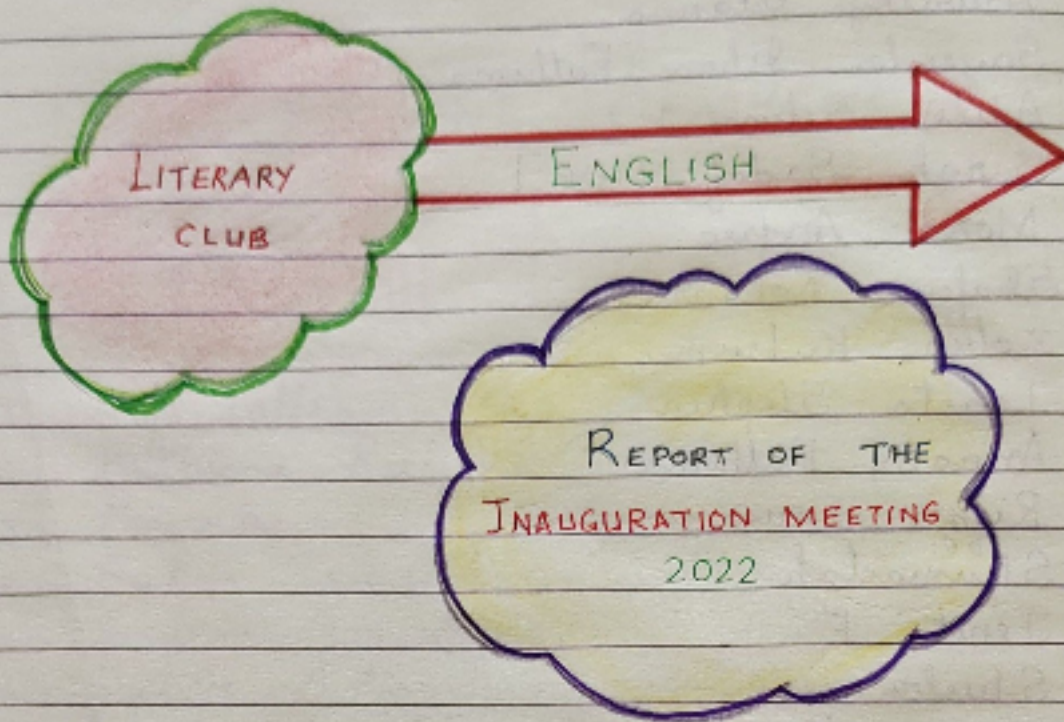 LITERARY
CLUB
ENGLISH
REPORT OF THE
INAUGURATION MEETING
2022